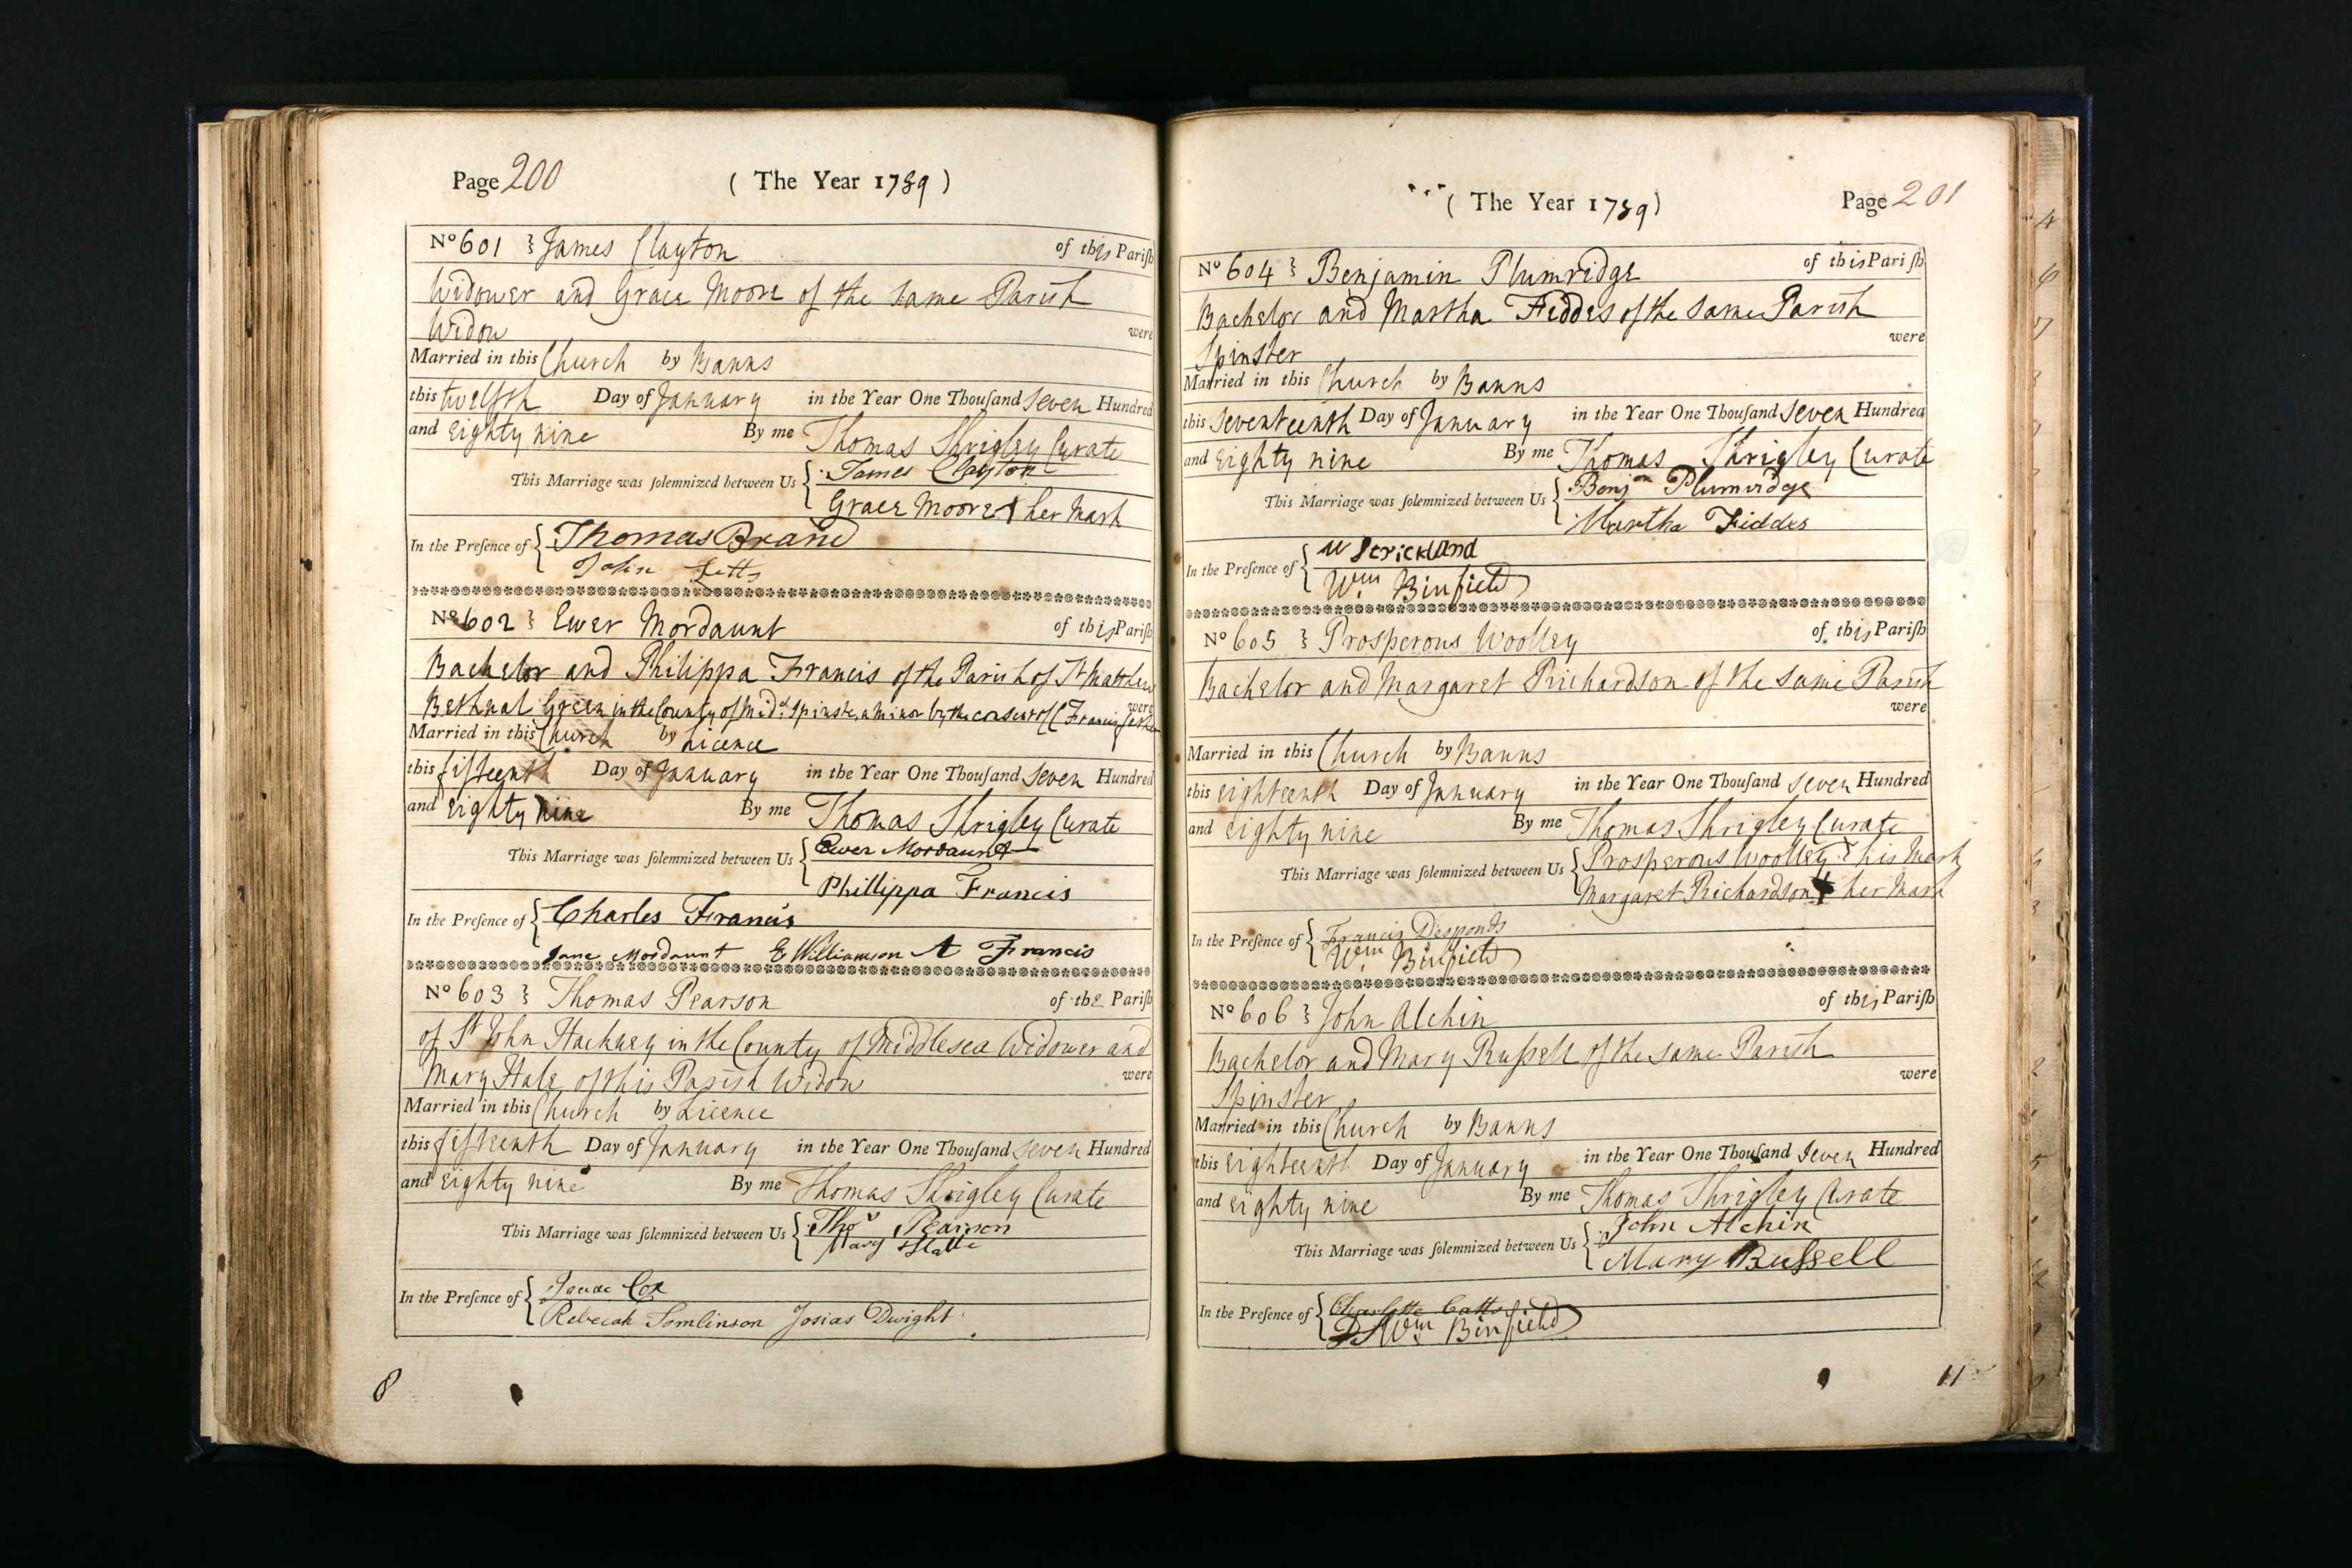 Page 200 ( The Year 1789 )
No 601 } James Clayton of this Parish
Widower and Grace Moore of the same Parish
Widow were
Married in this Church by Banns
this twelfth Day of January in the Year One Thouſand Seven Hundred
and Eighty nine By me Thomas Shrigley Curate
This Marriage was ſolemnized between Us { James Clayton
Grace Moore X her Mark
In the Preſence of { Thomas Brand
John Letts
No 602 } Ewer Mordaunt of this Pariſh
Bachelor and Philippa Francis of the Parish of St Matthew
Bethnal Green in the County of Midd: Spinster a Minor by the consent of C Francis father were
Married in this Church by Licence
this fifteenth Day of January in the Year One Thouſand Seven Hundred
and Eighty nine By me Thomas Shrigley Curate
This Marriage was ſolemnized between Us { Ewer Mordaunt
Phillippa Francis
In the Preſence of { Charles Francis
Jane Mordaunt E Williamson A Francis
No 603 } Thomas Pearson of the Pariſh
of St John Hackney in the County of Middlesex Widower and
Mary Hale of this Parish Widow were
Married in this Church by Licence
this fifteenth Day of January in the Year One Thouſand Seven Hundred
and Eighty nine By me Thomas Shrigley Curate
This Marriage was ſolemnized between Us { Thos Pearson
Mary
In the Preſence of { Cox
Rebecah Tomlinson Josias Dwight
8
( The Year 1789 ) Page 201
No 604 } Benjamin Plumridge of this Pariſh
Bachelor and Martha Fiddes of the same Parish
Spinster were
Married in this Church by Banns
this Seventeenth Day of January in the Year One Thouſand Seven Hundred
and Eighty nine By me Thomas Shrigley Curate
This Marriage was ſolemnized between Us { Benjn Plumridge
Martha Fiddes
In the Preſence of { W Strickland
Wm Binfield
No 605 } Prosperous Woolley of this Pariſh
Bachelor and Margaret Richardson of the same Parish
were
Married in this Church by Banns
this eighteenth Day of January in the Year One Thouſand Seven Hundred
and Eighty nine By me Thomas Shrigley Curate
This Marriage was ſolemnized between Us { Prosperous Woolley X his Mark
Margaret Richardson X her Mark
In the Preſence of { Francis Desponds
Wm Binfield
No 606 } John Alchin of this Pariſh
Bachelor and Mary Ruſsell of the same Parish
Spinster were
Married in this Church by Banns
this Eighteenth Day of January in the Year One Thouſand Seven Hundred
and Eighty nine By me Thomas Shrigley Curate
This Marriage was ſolemnized between Us { John Alchin
Mary Ruſsell
In the Preſence of { Charlotte Catts
Wm Binfield
11